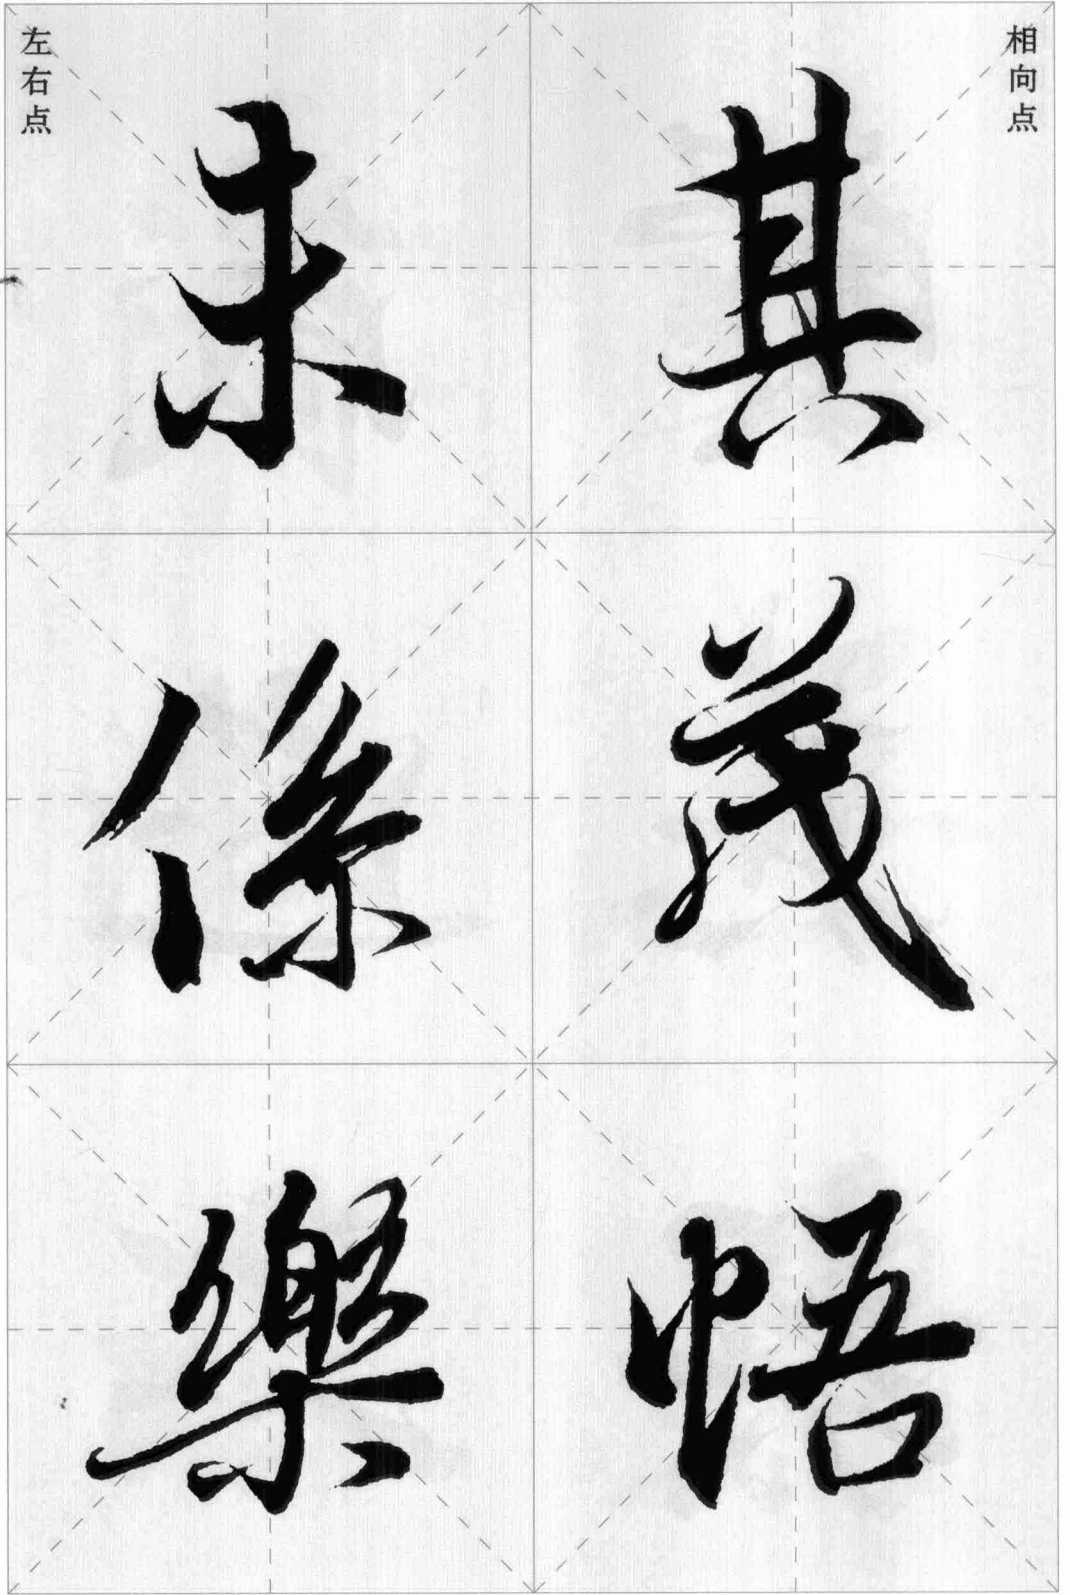 相向点
其
茂
悟
左右点
未
係
樂